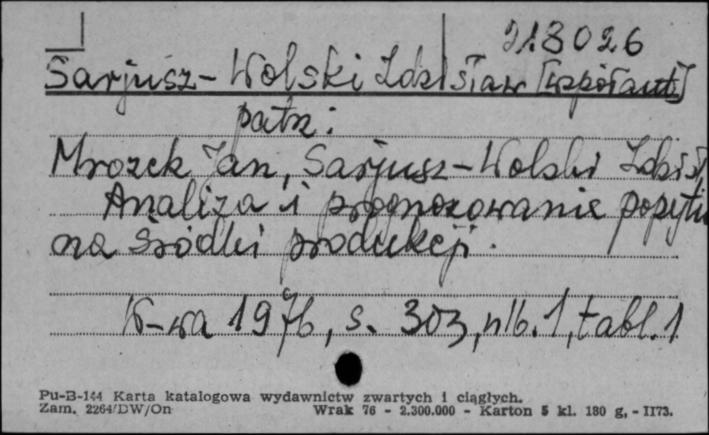 213026
Sarjusz-Wolski Zdzisław [współaut.]
patrz:
Mrozek Jan, Sarjusz-Wolski Zdzisł.
Analiza i prognozowanie popytu
na środki produkcji.
W-wa 1976, s. 303, nlb. 1, tabl. 1
Pu-B-144 Karta katalogowa wydawnictw zwartych i ciągłych.
Zam. 2264/DW/On Wrak 76 - 2.300.000 - Karton 5 kl. 180 g, - II73.